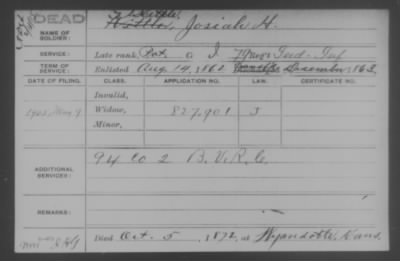 DEAD
NAME OF SOLDIER: Josiah H.
SERVICE: Late rank, Pvt. Co. I, 79 Regt. Ind. Inf.
TERM OF SERVICE: Enlisted Aug. 14, 1862, December, 1863
DATE OF FILING. CLASS. APPLICATION NO. LAW. CERTIFICATE NO.
Invalid,
1905, May 9 Widow, 827,901 J
Minor,
ADDITIONAL SERVICES: 94 Co 2 B. V. R. C.
REMARKS:
Died Oct. 5, 1872, at Wyandotte, Kans.